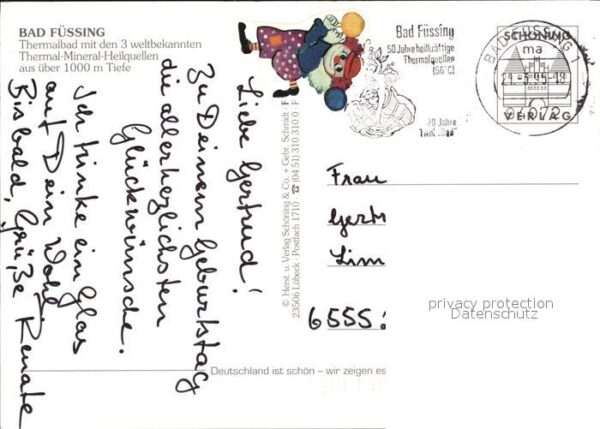 BAD FÜSSING
Thermalbad mit den 3 weltbekannten
Thermal-Mineral-Heilquellen
aus über 1000 m Tiefe
Liebe Gertrud!
Zu Deinem Geburtstag
die allerherzlichsten
Glückwünsche.
Ich trinke ein Glas
auf Dein Wohl.
Bis bald, Grüße Renate
© Herst. u. Verlag Schöning & Co. + Gebr. Schmidt
23506 Lübeck · Postfach 1710 · ☎ (04 51) 310 310 0
Bad Füssing
50 Jahre heilkräftige
Thermalquellen
(56°C)
20 Jahre
BAD FÜSSING 1
ma
94072
SCHÖNING
VERLAG
Frau
Gert
Lim
6555
privacy protection
Datenschutz
Deutschland ist schön – wir zeigen es